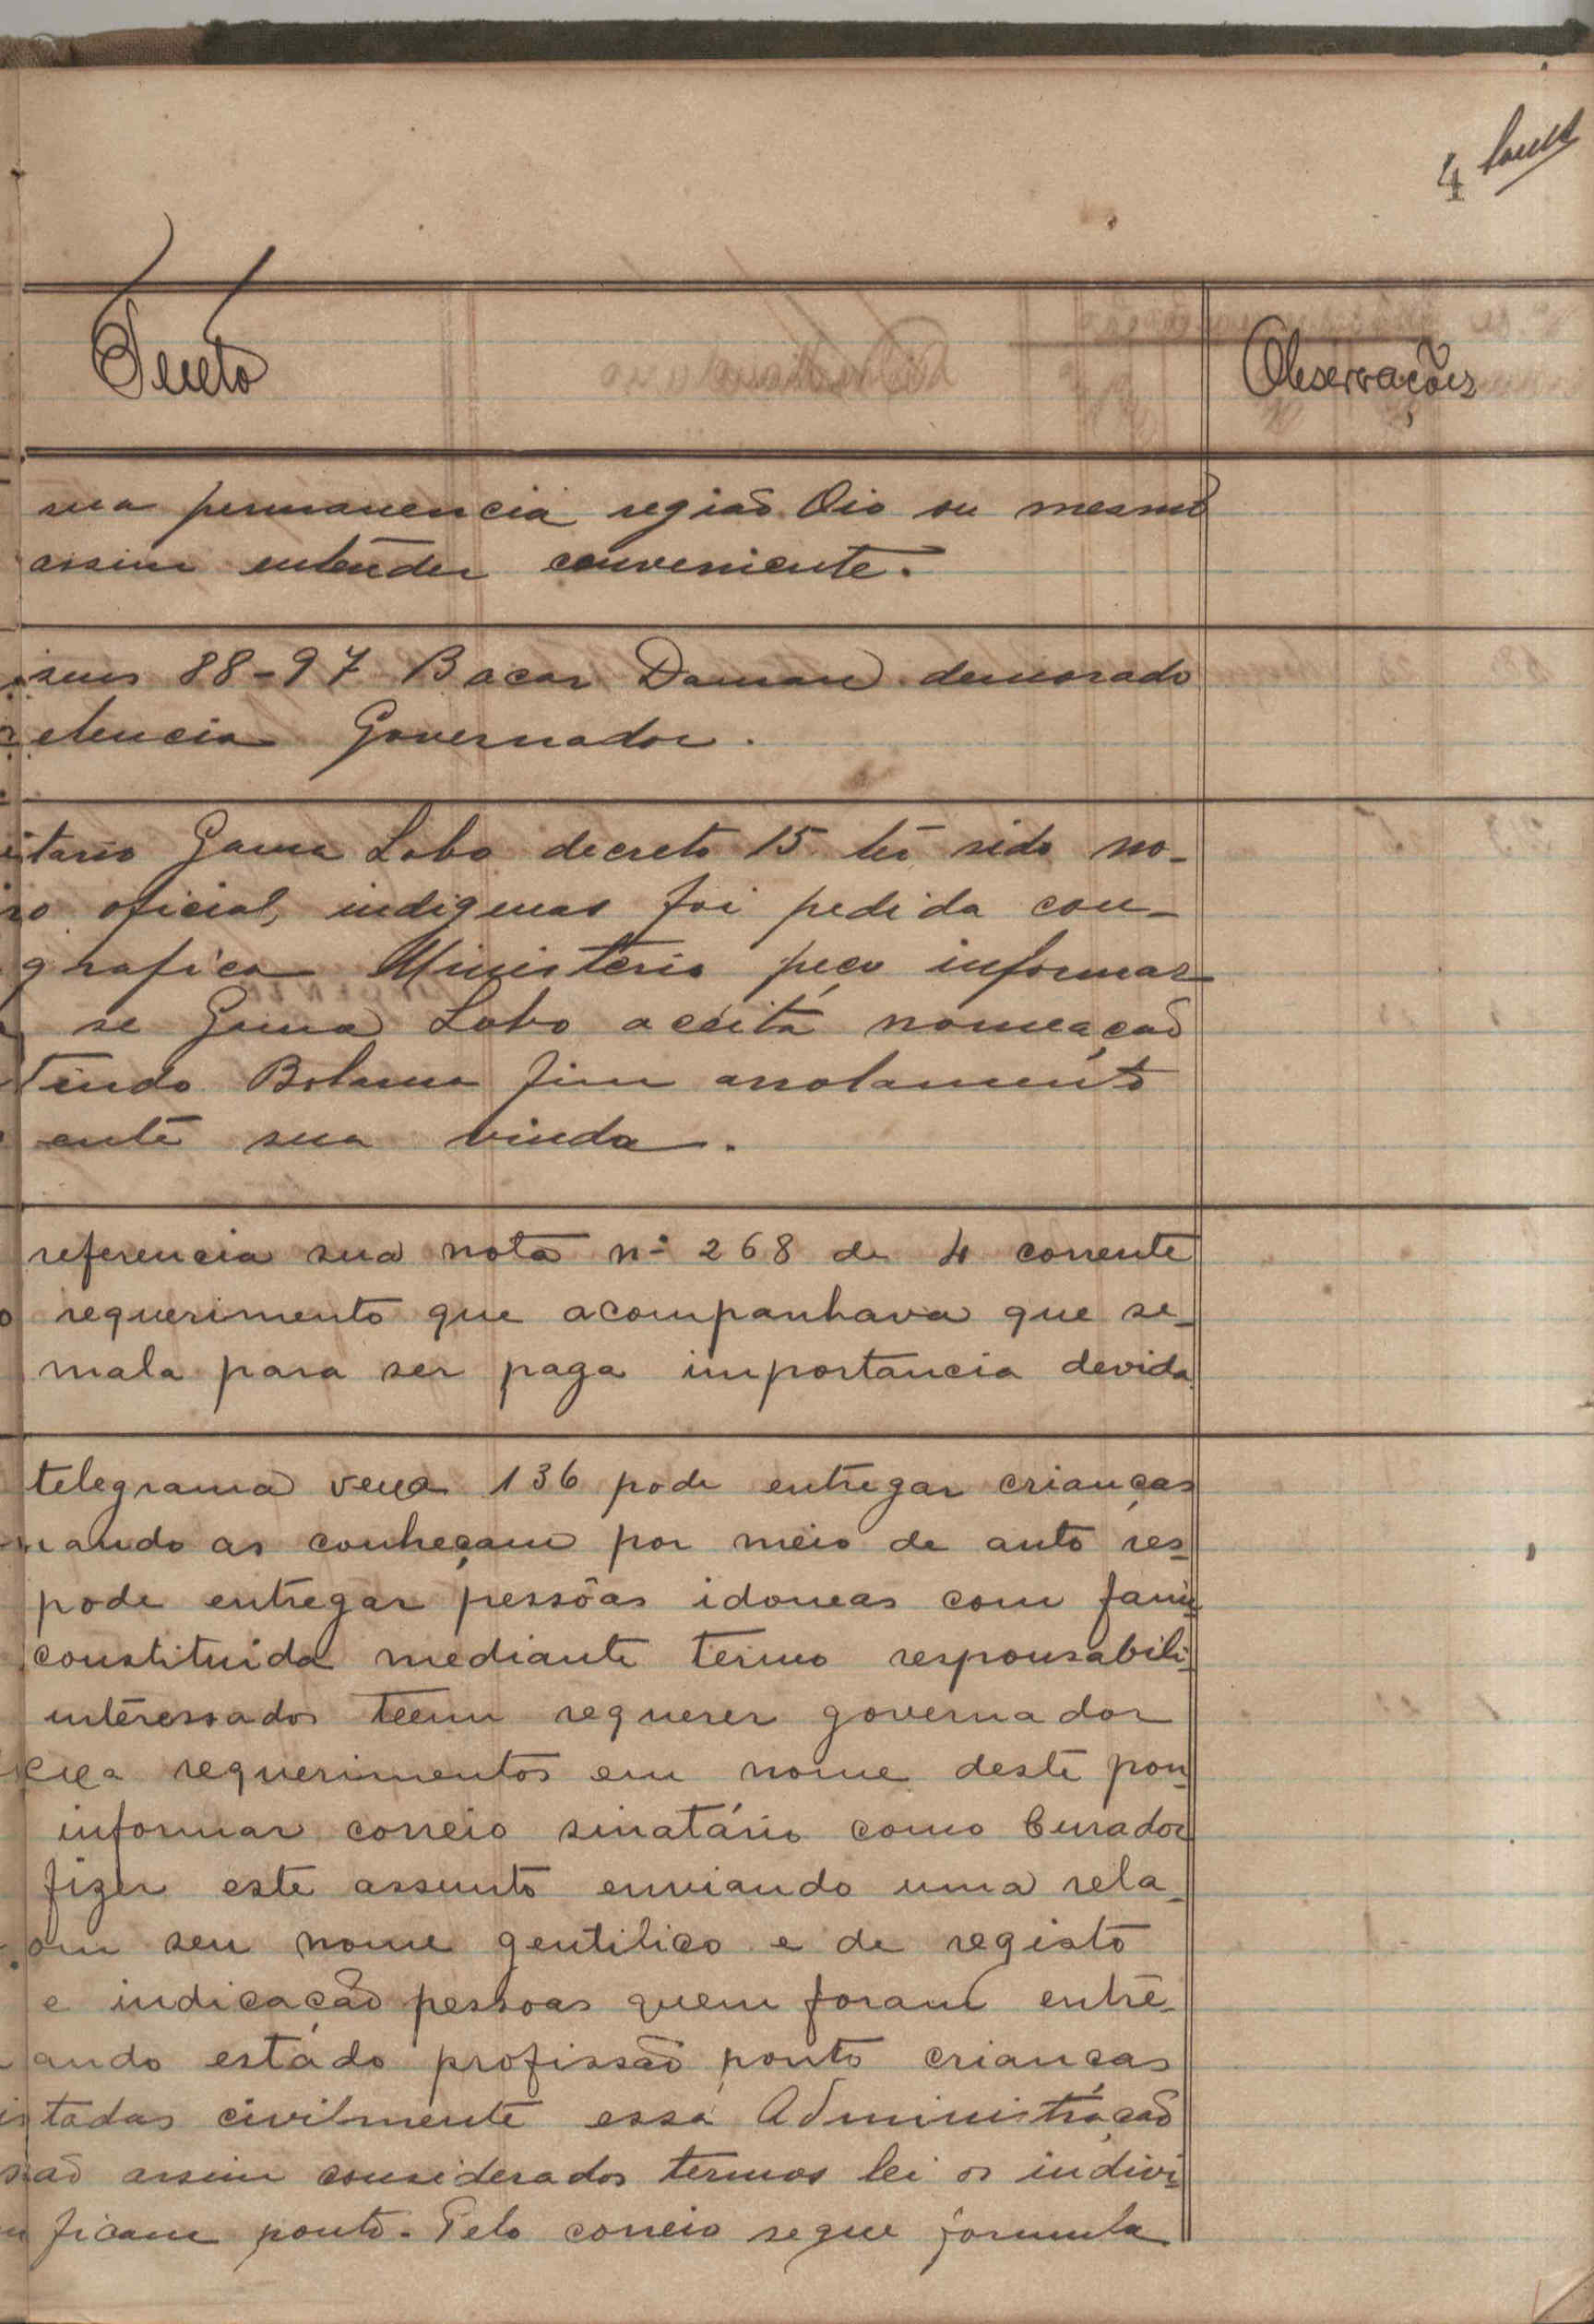 4
Texto
Observações
sua permanencia região Oio ou mesmo
assim entender conveniente.
88-97 Bacar Daman demorado
elencia Governador.
itario Gama Lobo decreto 15 ter sido no-
oficial, indigenas foi pedida con-
grafica Ministerio peço informar
se Gama Lobo aceita nomeação
vindo Bolama fim arrolamento
ente sua vinda.
referencia sua nota nº 268 de 4 corrente
o requerimento que acompanhava que se-
mala para ser paga importancia devida
telegrama vexa 136 pode entregar crianças
nando as conheçam por meio de auto res-
pode entregar pessôas idoneas com fami-
constituida mediante termo responsabili-
interessados teem requerer governador
requerimentos em nome deste pon-
informar correio sinatário como Curador
fizer este assunto enviando uma rela-
om seu nome gentilico e de registo
e indicação pessoas quem foram entre-
ando estado profissão ponto crianças
istadas civilmente essa Administração
são assim considerados termos lei os indivi-
ficam ponto. Pelo correio segue formula